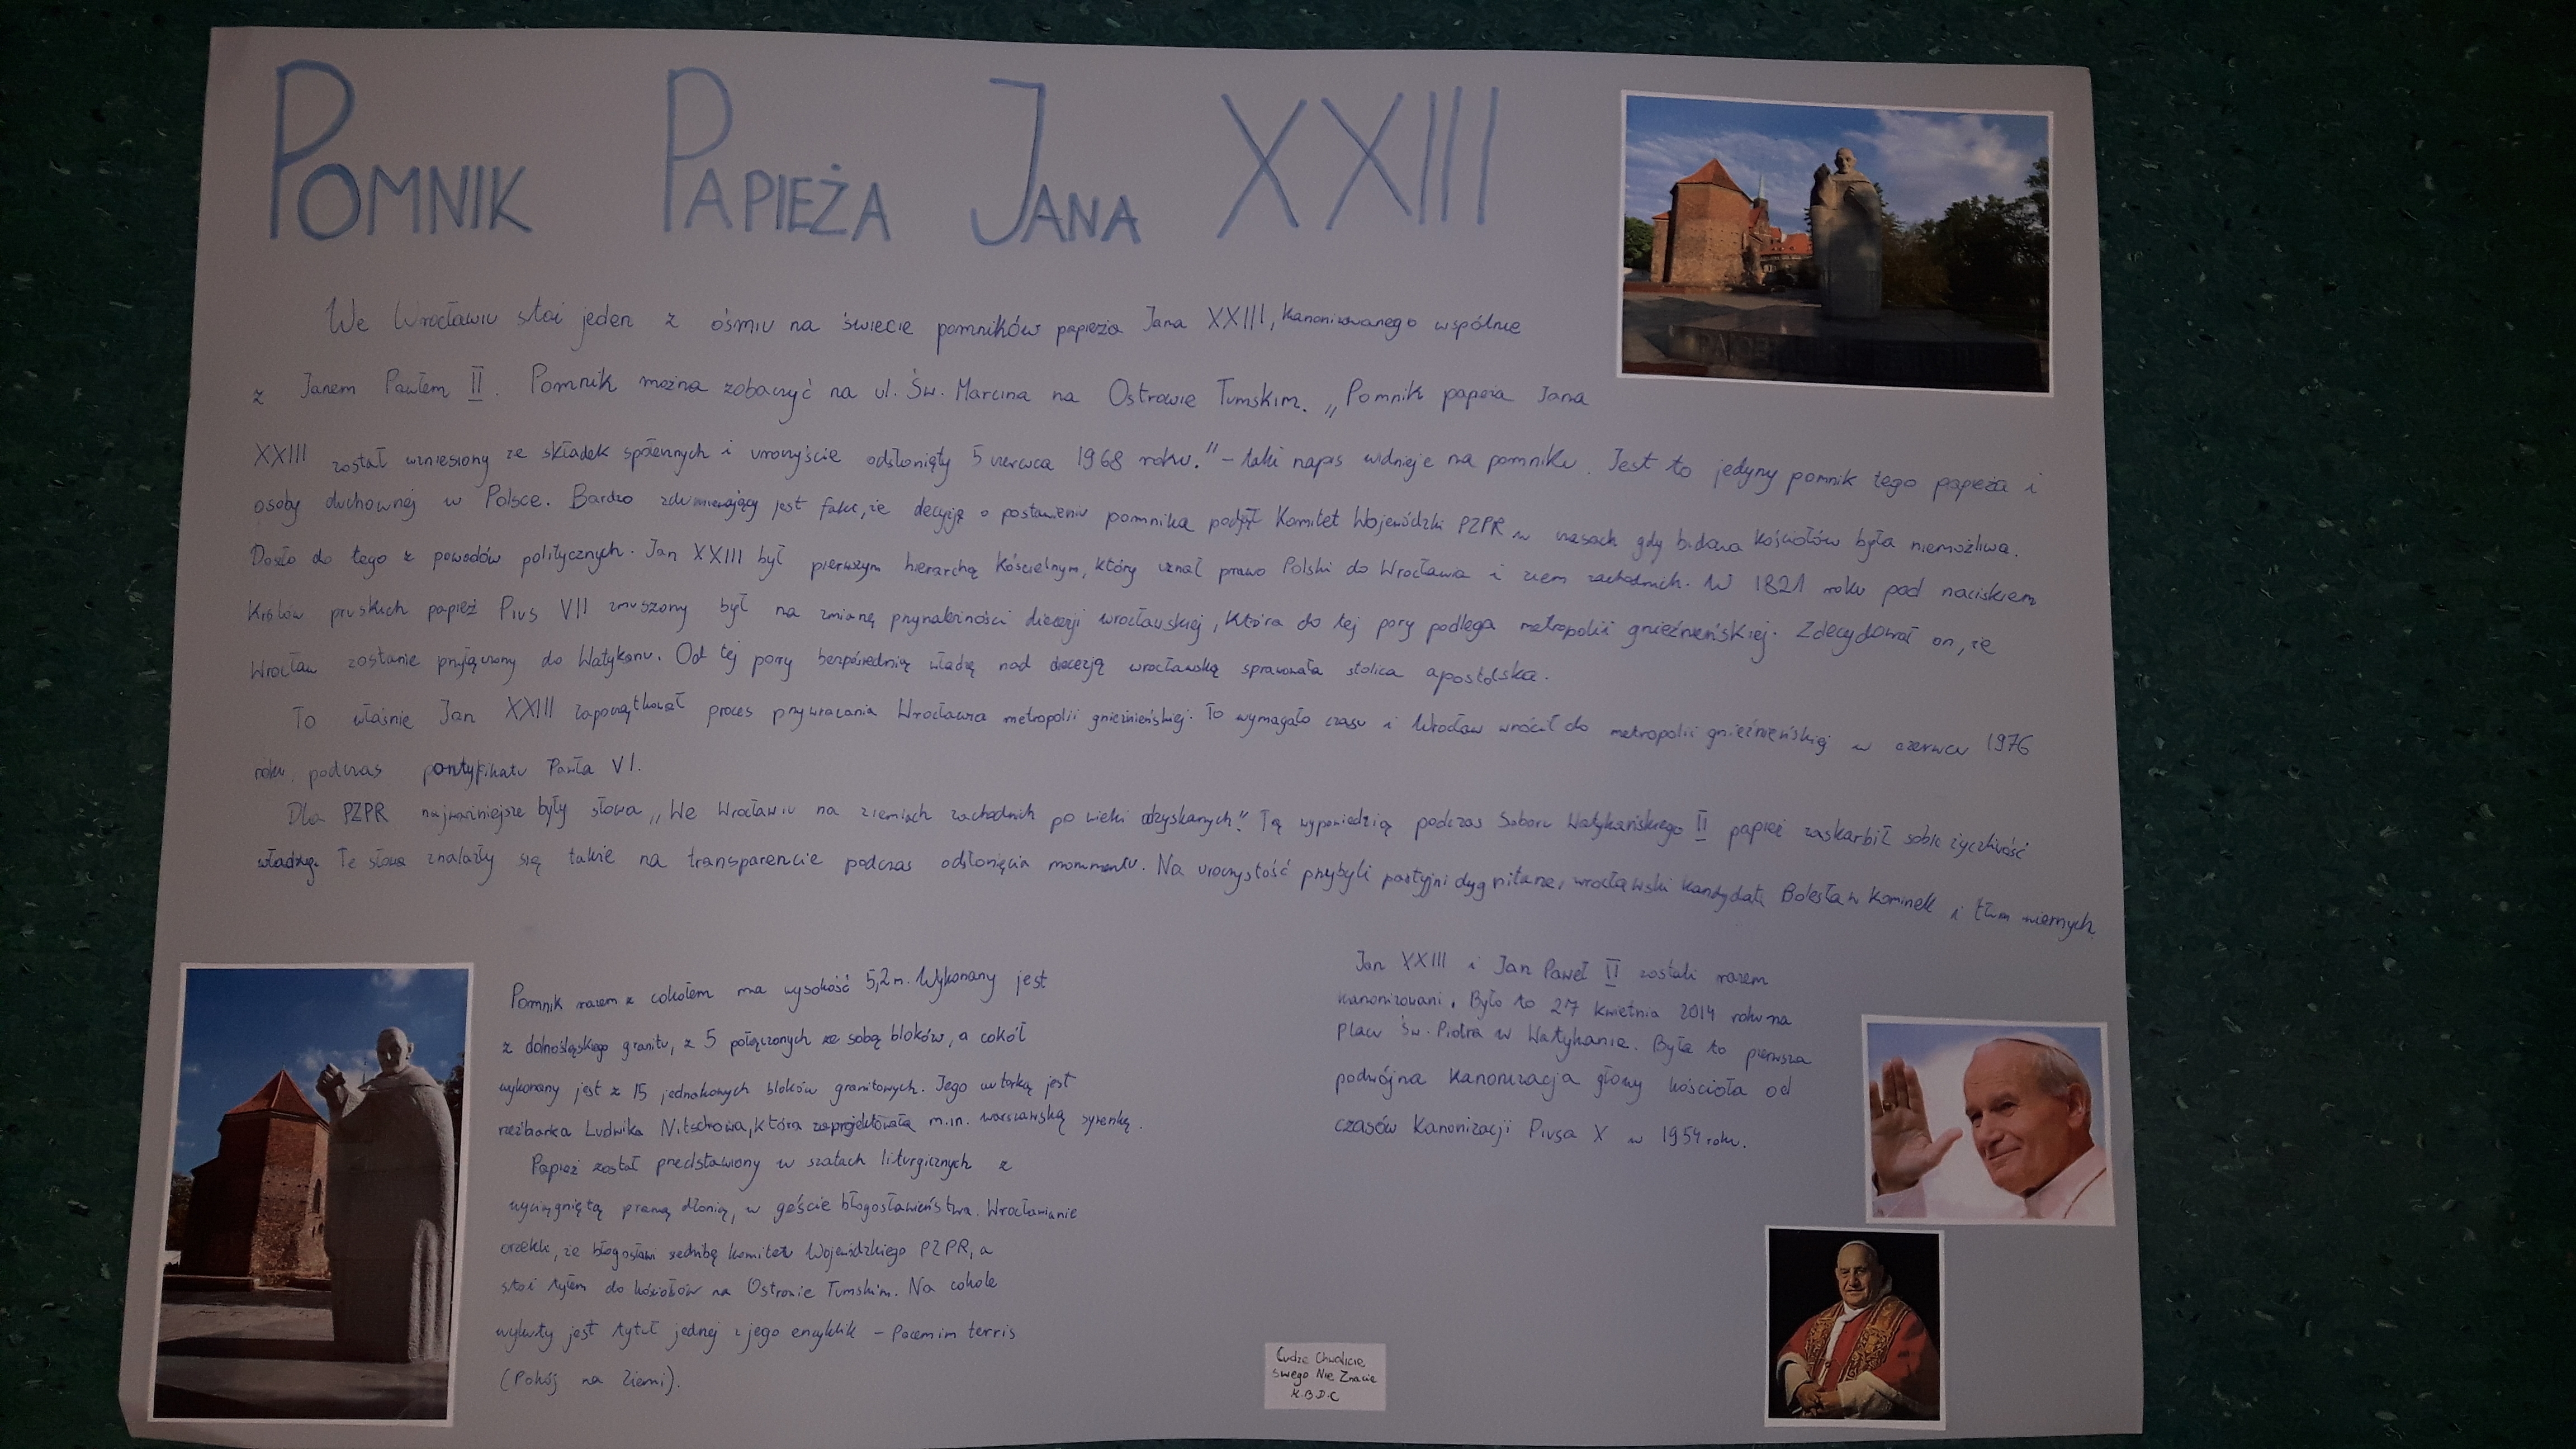 POMNIK PAPIEŻA JANA XXIII
We Wrocławiu stoi jeden z ośmiu na świecie pomników papieża Jana XXIII, kanonizowanego wspólnie
z Janem Pawłem II. Pomnik można zobaczyć na ul. Św. Marcina na Ostrowie Tumskim. „Pomnik papieża Jana
XXIII został wzniesiony ze składek społecznych i uroczyście odsłonięty 5 czerwca 1968 roku." – taki napis widnieje na pomniku. Jest to jedyny pomnik tego papieża i
osoby duchownej w Polsce. Bardzo zdumiewający jest fakt, że decyzję o postawieniu pomnika podjął Komitet Wojewódzki PZPR w czasach gdy budowa kościołów była niemożliwa.
Doszło do tego z powodów politycznych. Jan XXIII był pierwszym hierarchą kościelnym, który uznał prawo Polski do Wrocławia i ziem zachodnich. W 1821 roku pod naciskiem
królów pruskich papież Pius VII zmuszony był na zmianę przynależności diecezji wrocławskiej, która do tej pory podlega metropolii gnieźnieńskiej. Zdecydował on, że
Wrocław zostanie przyłączony do Watykanu. Od tej pory bezpośrednią władzę nad diecezją wrocławską sprawowała stolica apostolska.
To właśnie Jan XXIII zapoczątkował proces przywracania Wrocławia metropolii gnieźnieńskiej. To wymagało czasu i Wrocław wrócił do metropolii gnieźnieńskiej w czerwcu 1976
roku, podczas pontyfikatu Pawła VI.
Dla PZPR najważniejsze były słowa „We Wrocławiu na ziemiach zachodnich po wieki odzyskanych". Tą wypowiedzią podczas Soboru Watykańskiego II papież zaskarbił sobie życzliwość
władzy. Te słowa znalazły się także na transparencie podczas odsłonięcia monumentu. Na uroczystość przybyli partyjni dygnitarze, wrocławski kandydat Bolesław Kominek i tłum wiernych.
Pomnik razem z cokołem ma wysokość 5,2 m. Wykonany jest
z dolnośląskiego granitu, z 5 połączonych ze sobą bloków, a cokół
wykonany jest z 15 jednakowych bloków granitowych. Jego autorką jest
rzeźbiarka Ludwika Nitschowa, która zaprojektowała m.in. warszawską syrenkę.
Papież został przedstawiony w szatach liturgicznych z
wyciągniętą prawą dłonią, w geście błogosławieństwa. Wrocławianie
orzekli, że błogosławi siedzibę komitetu Wojewódzkiego PZPR, a
stoi tyłem do kościołów na Ostrowie Tumskim. Na cokole
wykuty jest tytuł jednej z jego encyklik – Pacem im terris
(Pokój na Ziemi).
Jan XXIII i Jan Paweł II zostali razem
kanonizowani. Było to 27 kwietnia 2014 roku na
placu Św. Piotra w Watykanie. Była to pierwsza
podwójna kanonizacja głowy kościoła od
czasów kanonizacji Piusa X w 1954 roku.
Cudze Chwalicie
Swego Nie Znacie
K.B.D.C